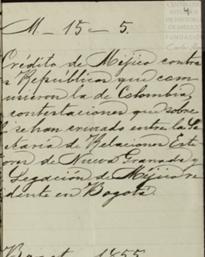 4.
M - 15 - 5.
Crédito de Méjico contra
s Repúblicas que com
usieron la de Colombia,
contestaciones que sobre
l se han cruzado entre la Se
etaría de Relaciones Este
ores de Nueva Granada y
Legación de Méjico re
idente en Bogotá.
1855